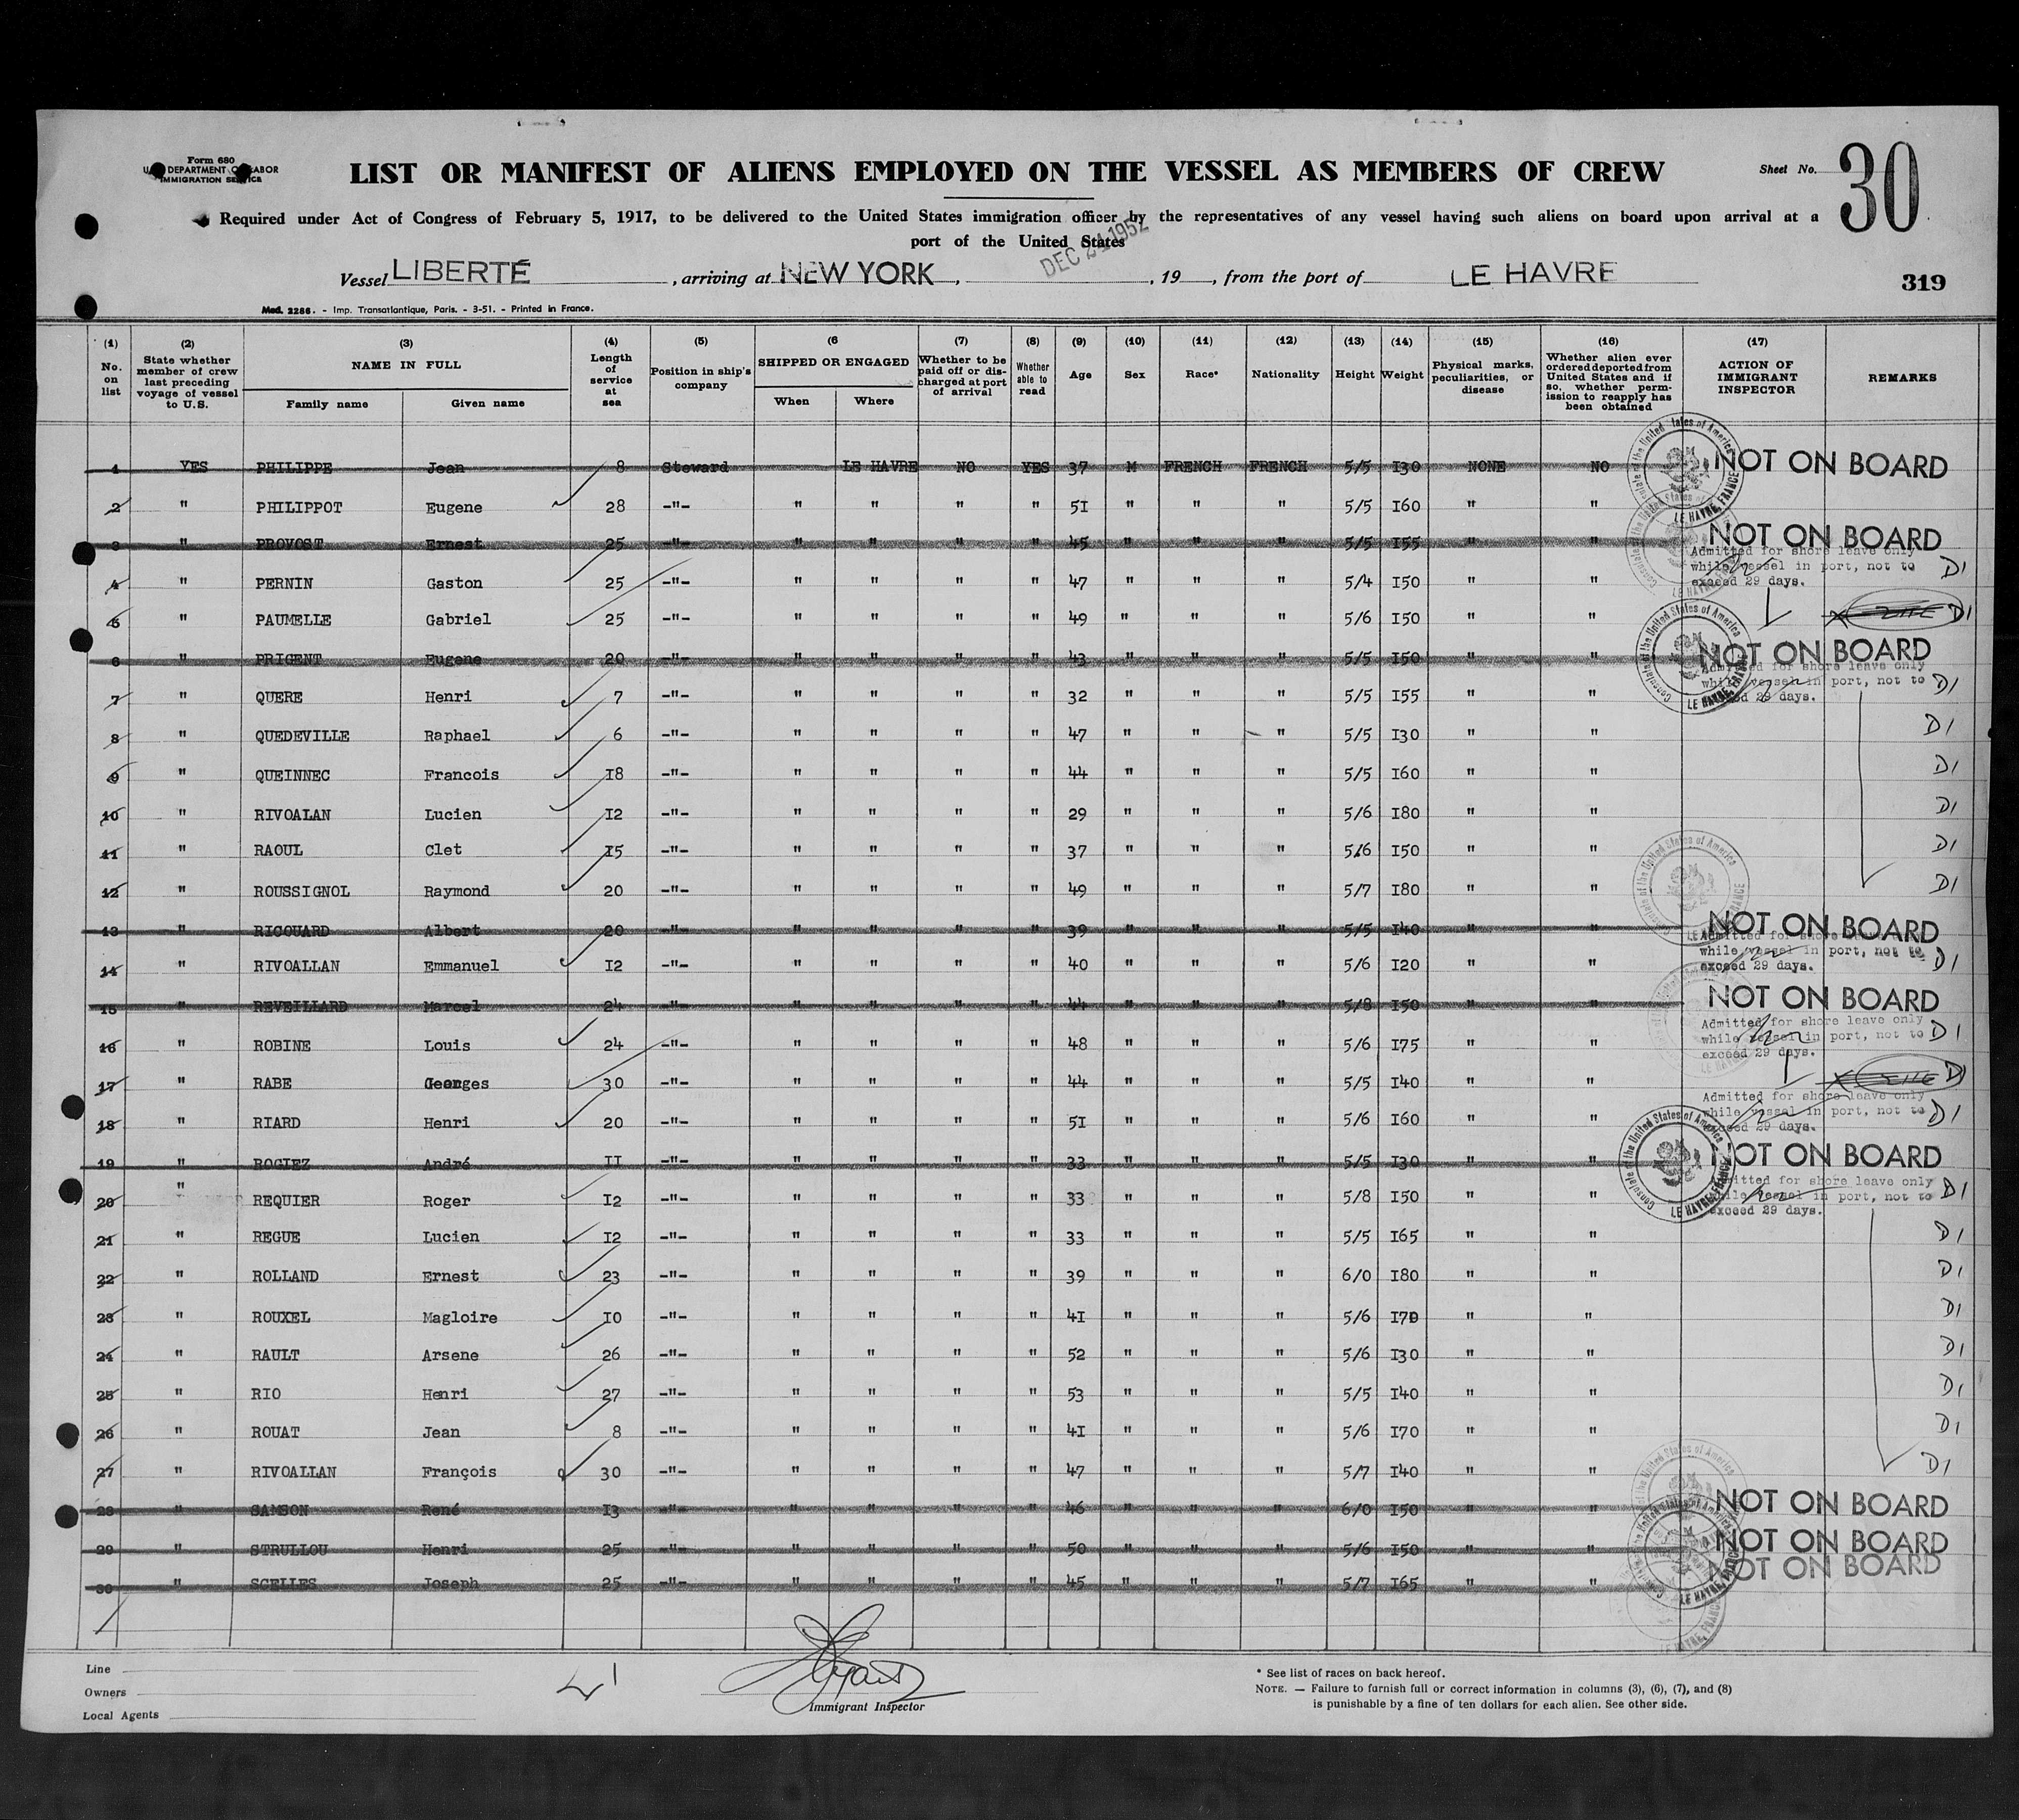 Form 680
U. S. DEPARTMENT OF LABOR
IMMIGRATION SERVICE
LIST OR MANIFEST OF ALIENS EMPLOYED ON THE VESSEL AS MEMBERS OF CREW
Sheet No. 30
Required under Act of Congress of February 5, 1917, to be delivered to the United States immigration officer by the representatives of any vessel having such aliens on board upon arrival at a
port of the United States
DEC 24 1952
Vessel LIBERTÉ, arriving at NEW YORK, , 19 , from the port of LE HAVRE
319
Med. 2286. - Imp. Transatlantique, Paris. - 3-51. - Printed in France.
(1) No. on list (2) State whether member of crew last preceding voyage of vessel to U.S. (3) NAME IN FULL Family name Given name (4) Length of service at sea (5) Position in ship's company (6 SHIPPED OR ENGAGED When Where (7) Whether to be paid off or discharged at port of arrival (8) Whether able to read (9) Age (10) Sex (11) Race* (12) Nationality (13) Height (14) Weight (15) Physical marks, peculiarities, or disease (16) Whether alien ever ordered deported from United States and if so, whether permission to reapply has been obtained (17) ACTION OF IMMIGRANT INSPECTOR REMARKS
1 YES PHILIPPE Jean 8 Steward LE HAVRE NO YES 37 M FRENCH FRENCH 5/5 I30 NONE NO NOT ON BOARD
2 " PHILIPPOT Eugene 28 -"- " " " " 5I " " " 5/5 I60 " "
3 " PROVOST Ernest 25 -"- " " " " 45 " " " 5/5 I55 " " NOT ON BOARD
Admitted for shore leave only
while vessel in port, not to
exceed 29 days.
4 " PERNIN Gaston 25 -"- " " " " 47 " " " 5/4 I50 " " D1
5 " PAUMELLE Gabriel 25 -"- " " " " 49 " " " 5/6 I50 " " D1
6 " PRIGENT Eugene 20 -"- " " " " 43 " " " 5/5 I50 " " NOT ON BOARD
Admitted for shore leave only
while vessel in port, not to
exceed 29 days.
7 " QUERE Henri 7 -"- " " " " 32 " " " 5/5 I55 " " D1
8 " QUEDEVILLE Raphael 6 -"- " " " " 47 " " " 5/5 I30 " " D1
9 " QUEINNEC Francois I8 -"- " " " " 44 " " " 5/5 I60 " " D1
10 " RIVOALAN Lucien I2 -"- " " " " 29 " " " 5/6 I80 " " D1
11 " RAOUL Clet I5 -"- " " " " 37 " " " 5/6 I50 " " D1
12 " ROUSSIGNOL Raymond 20 -"- " " " " 49 " " " 5/7 I80 " " D1
13 " RICOUARD Albert 20 -"- " " " " 39 " " " 5/5 I40 " " NOT ON BOARD
Admitted for shore leave only
while vessel in port, not to
exceed 29 days.
14 " RIVOALLAN Emmanuel I2 -"- " " " " 40 " " " 5/6 I20 " " D1
15 " REVEILLARD Marcel 24 -"- " " " " 44 " " " 5/8 I50 " " NOT ON BOARD
Admitted for shore leave only
while vessel in port, not to
exceed 29 days.
16 " ROBINE Louis 24 -"- " " " " 48 " " " 5/6 I75 " " D1
17 " RABE Georges 30 -"- " " " " 44 " " " 5/5 I40 " " D1
Admitted for shore leave only
while vessel in port, not to
exceed 29 days.
18 " RIARD Henri 20 -"- " " " " 5I " " " 5/6 I60 " " D1
19 " ROGIEZ André II -"- " " " " 33 " " " 5/5 I30 " " NOT ON BOARD
Admitted for shore leave only
while vessel in port, not to
exceed 29 days.
20 " REQUIER Roger I2 -"- " " " " 33 " " " 5/8 I50 " " D1
21 " REGUE Lucien I2 -"- " " " " 33 " " " 5/5 I65 " " D1
22 " ROLLAND Ernest 23 -"- " " " " 39 " " " 6/0 I80 " " D1
23 " ROUXEL Magloire I0 -"- " " " " 4I " " " 5/6 I70 " " D1
24 " RAULT Arsene 26 -"- " " " " 52 " " " 5/6 I30 " " D1
25 " RIO Henri 27 -"- " " " " 53 " " " 5/5 I40 " " D1
26 " ROUAT Jean 8 -"- " " " " 4I " " " 5/6 I70 " " D1
27 " RIVOALLAN François 30 -"- " " " " 47 " " " 5/7 I40 " " D1
28 " SAMSON René I3 -"- " " " " 46 " " " 6/0 I50 " " NOT ON BOARD
29 " STRULLOU Henri 25 -"- " " " " 50 " " " 5/6 I50 " " NOT ON BOARD
30 " SCELLES Joseph 25 -"- " " " " 45 " " " 5/7 I65 " " NOT ON BOARD
Consulate of the United States of America
LE HAVRE, FRANCE
Line
Owners
Local Agents
Immigrant Inspector
* See list of races on back hereof.
NOTE. — Failure to furnish full or correct information in columns (3), (6), (7), and (8)
is punishable by a fine of ten dollars for each alien. See other side.